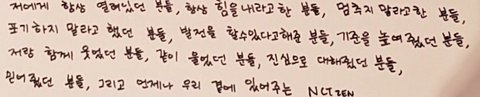 저에게 항상 열려있던 분들, 항상 힘을 내라고한 분들, 멈추지 말라고한 분들,
포기하지 말라고 했던 분들, 발전을 할수있다고해준 분들, 기준을 높여줬던 분들,
저랑 함께 웃었던 분들, 같이 울었던 분들, 진심으로 대해줬던 분들,
믿어줬던 분들, 그리고 언제나 우리 곁에 있어주는 NCTZEN